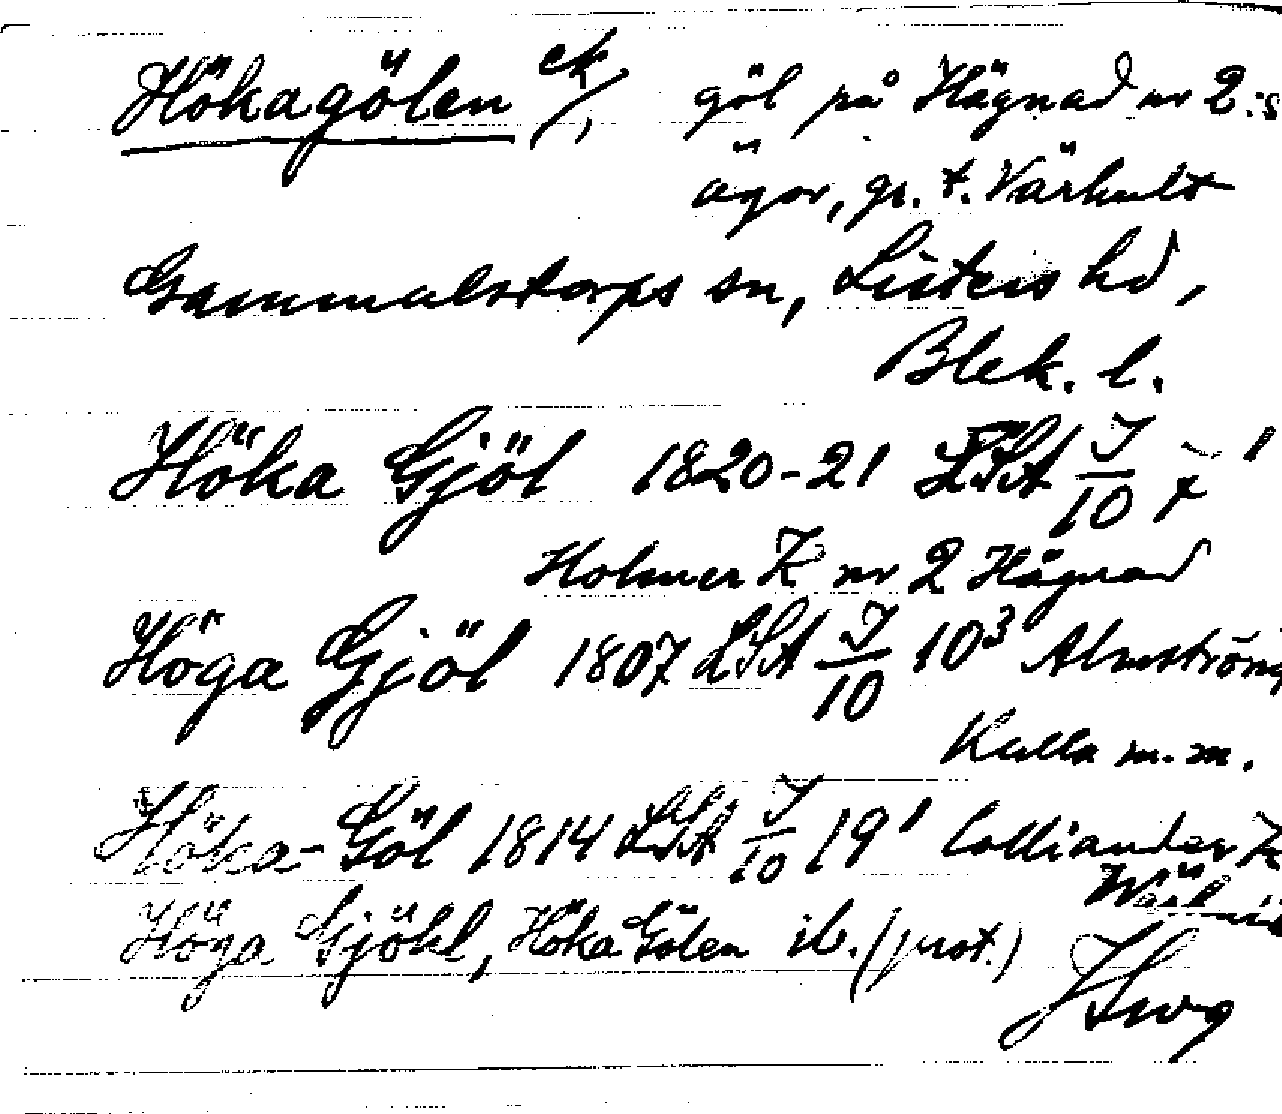 Hökagölen ek/, göl på Hägnad nr 2:s
ägor, gr. t. Värhult
Gammalstorps sn, Listers hd,
Blek. l.
Höka Gjöl 1820-21 LSA J/10 7¹
Holmer K nr 2 Hägnad
Höga Gjöl 1807 LSA J/10 10³ Almström,
Kulla m.m.
Höka-Göl 1814 LSA J/10 19¹ Colliander K
Höga Gjöhl, Höka Gölen ib. (prot.)